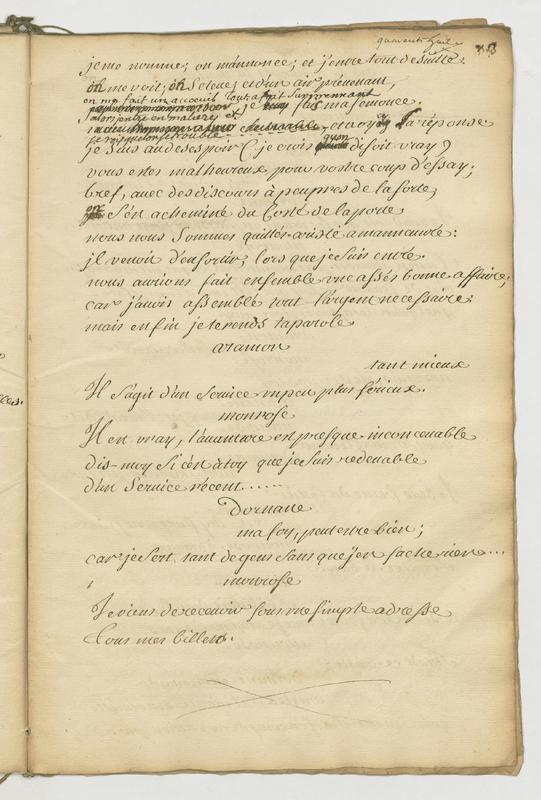 quarente huit
je me nomme; on m'annonce; et j'entre tout de suitte.
on me voit; on se leve; et d'un air prevenant,
on me fait un accoeuil tout a fait surprenant
je fais ma semonce.
alors on tire en malery et
et voyez la réponse
je suis au desespoir (je crois qu'on disoit vray)
vous estes malheureux pour vostre coup d'essay;
bref, avec des discours à peu pres de la sorte,
s'est acheminé du costé de la porte
nous nous sommes quittés
il venoit d'en sortir; lors que je suis entré.
nous aurions fait ensemble une assés bonne affaire;
car j'auois assemblé tout l'argent necessaire:
mais enfin je te rends ta parole
aramon
tant mieux
Il s'agit d'un service un peu plus sérieux.
monrose
Il en vray, l'auanture est presque inconceuable
dis-moy si c'en à toy que je suis redeuable
d'un service récent......
Dornane
ma foy, peut estre bien;
car je sers tant de gens sans que j'en sache rien...
monrose
Je viens de recevoir sous une simple adresse
Tous mes billets.